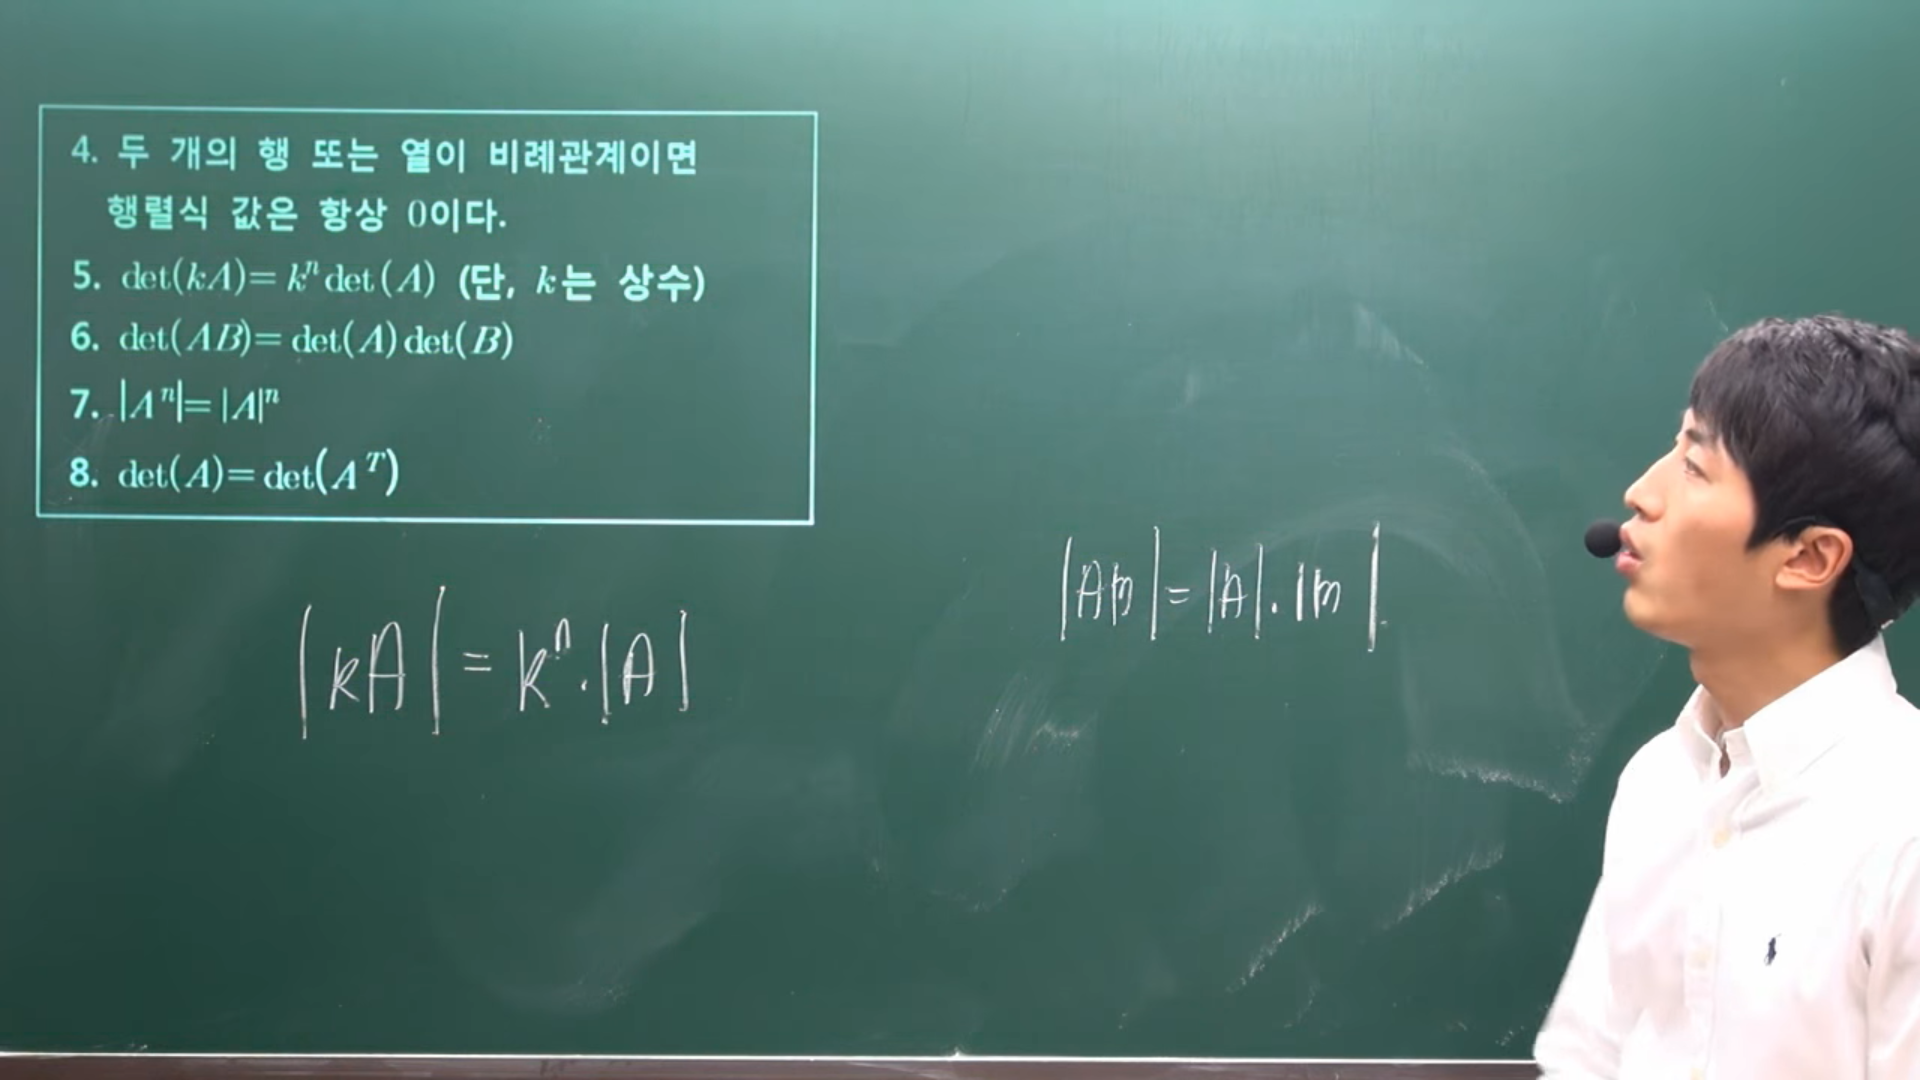 4. 두 개의 행 또는 열이 비례관계이면
행렬식 값은 항상 0이다.
5. det(kA)= kⁿ det(A) (단, k는 상수)
6. det(AB)= det(A) det(B)
7. |Aⁿ|= |A|ⁿ
8. det(A)= det(Aᵀ)
|kA| = kⁿ · |A|
|AB| = |A| · |B|